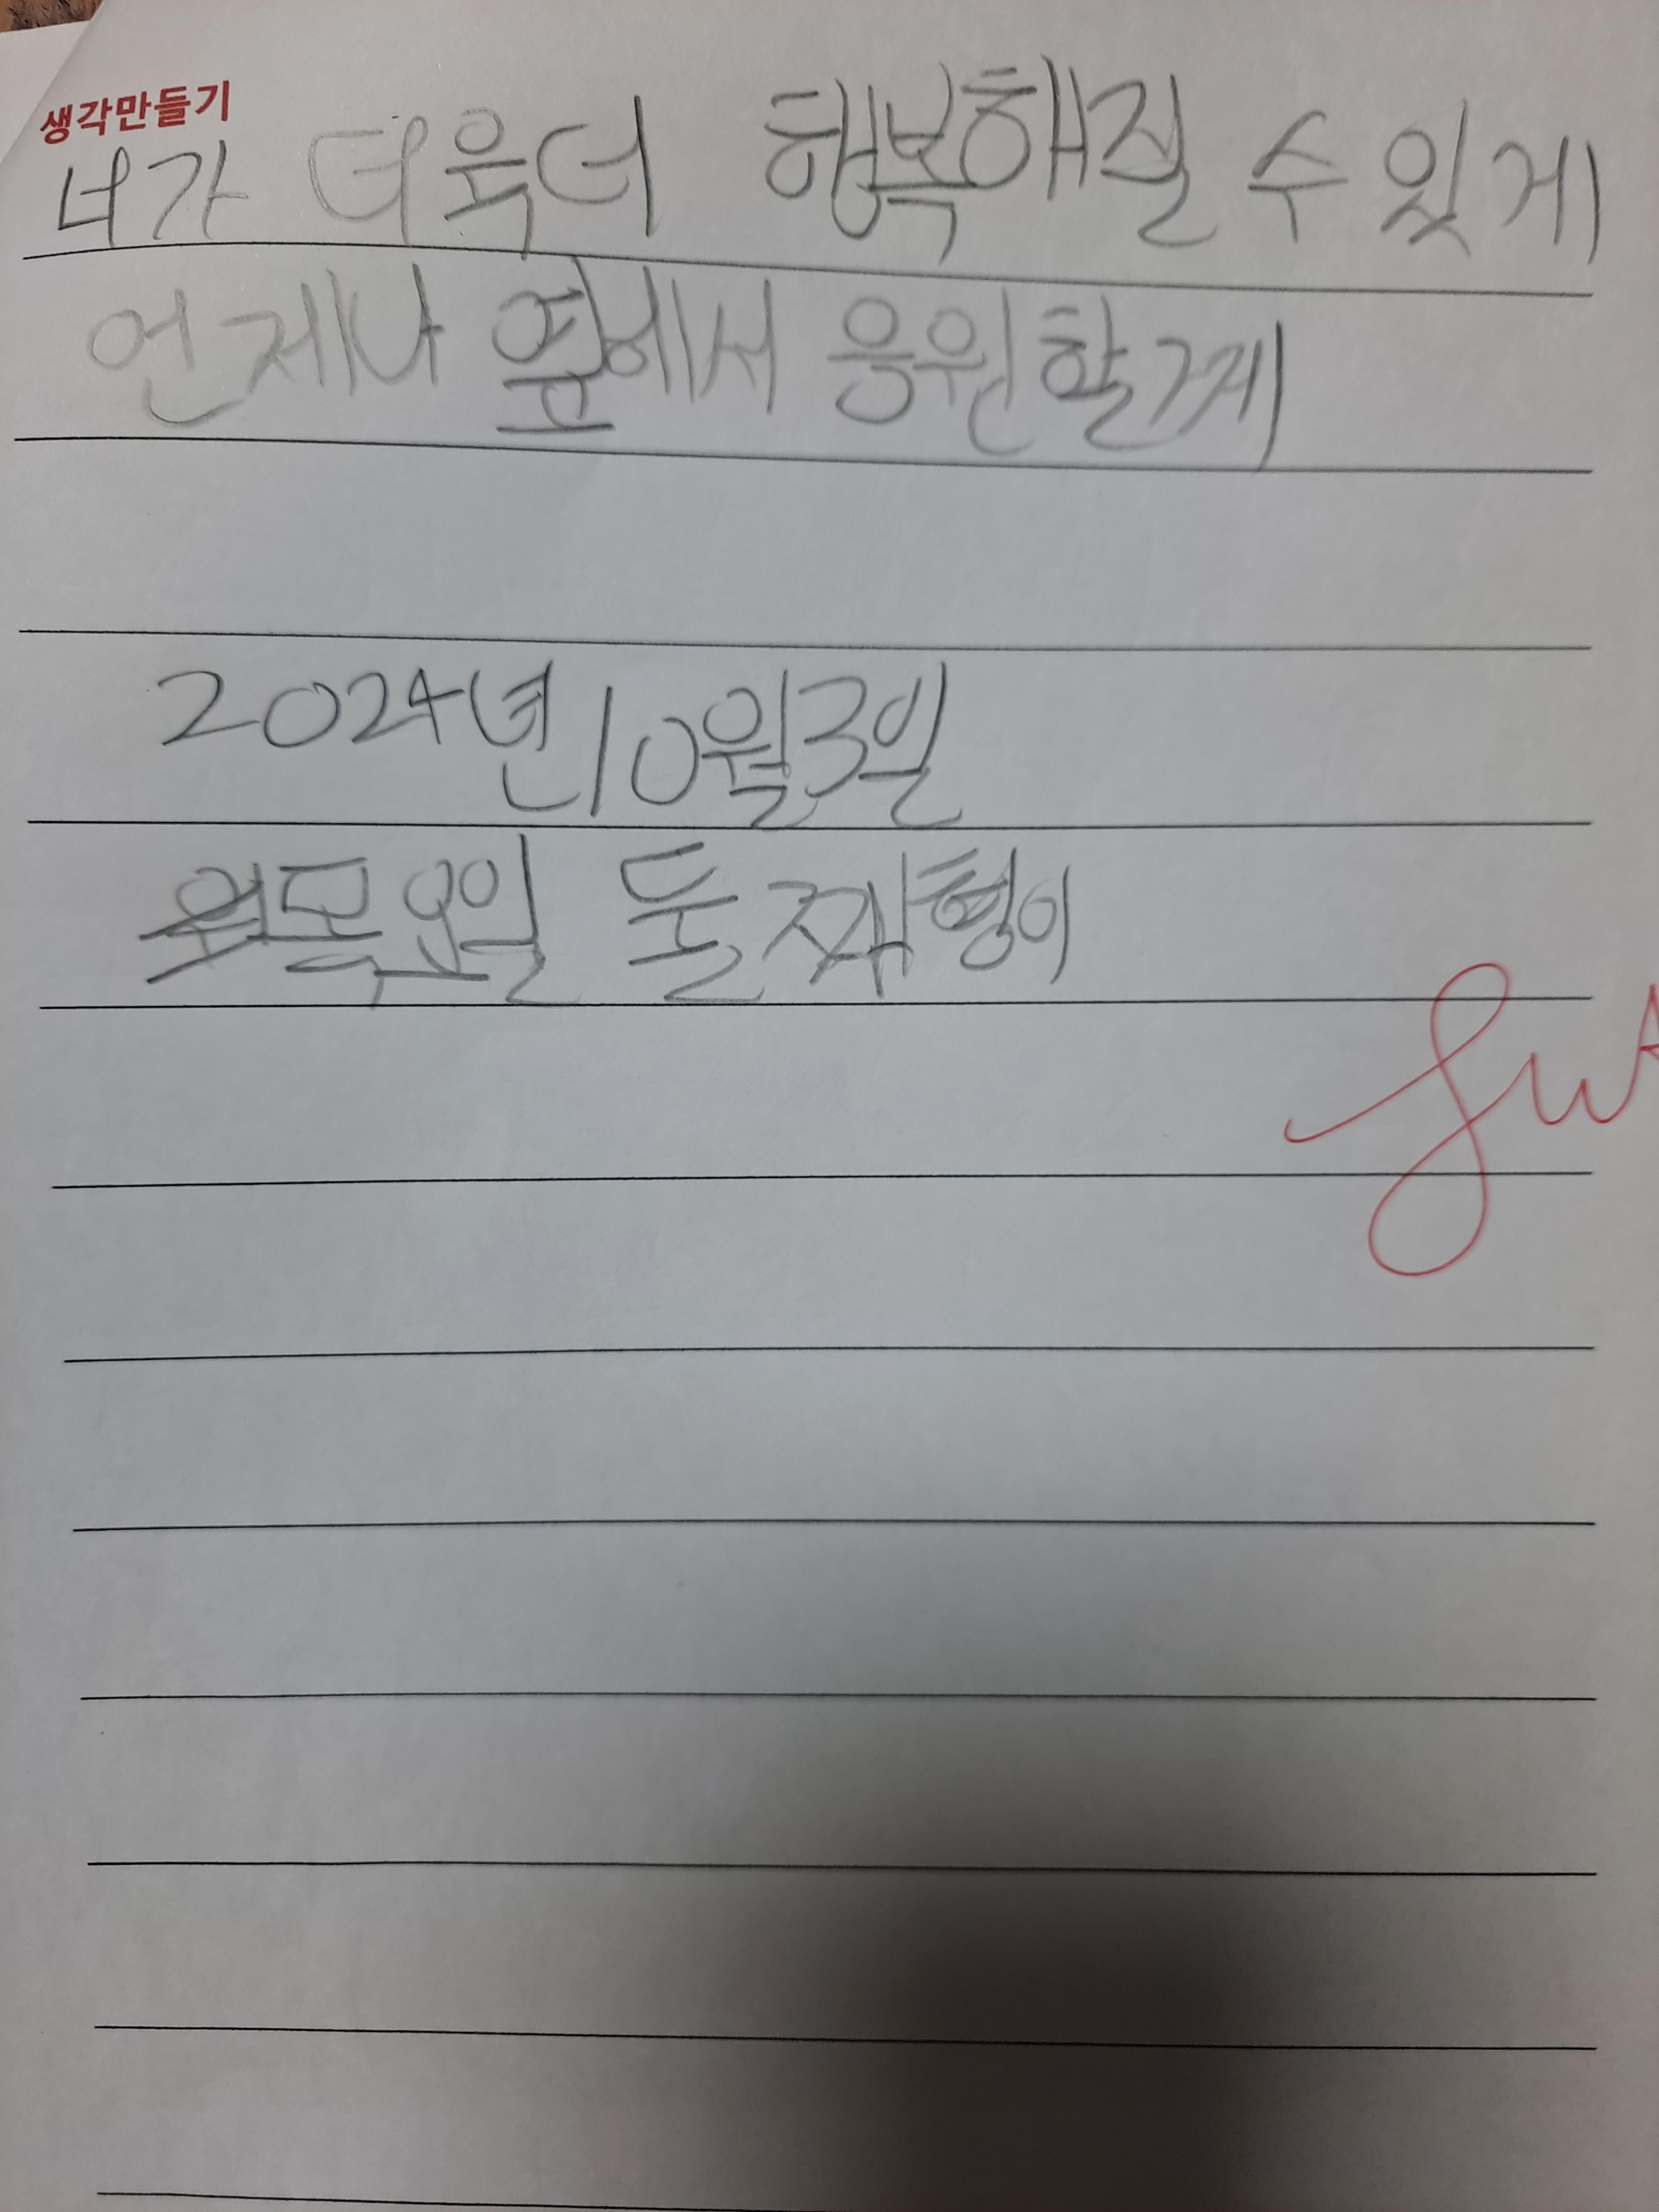 생각만들기
너가 더욱더 행복해질 수 있게
언제나 옆에서 응원할게
2024년 10월 3일
목요일 둘째형이